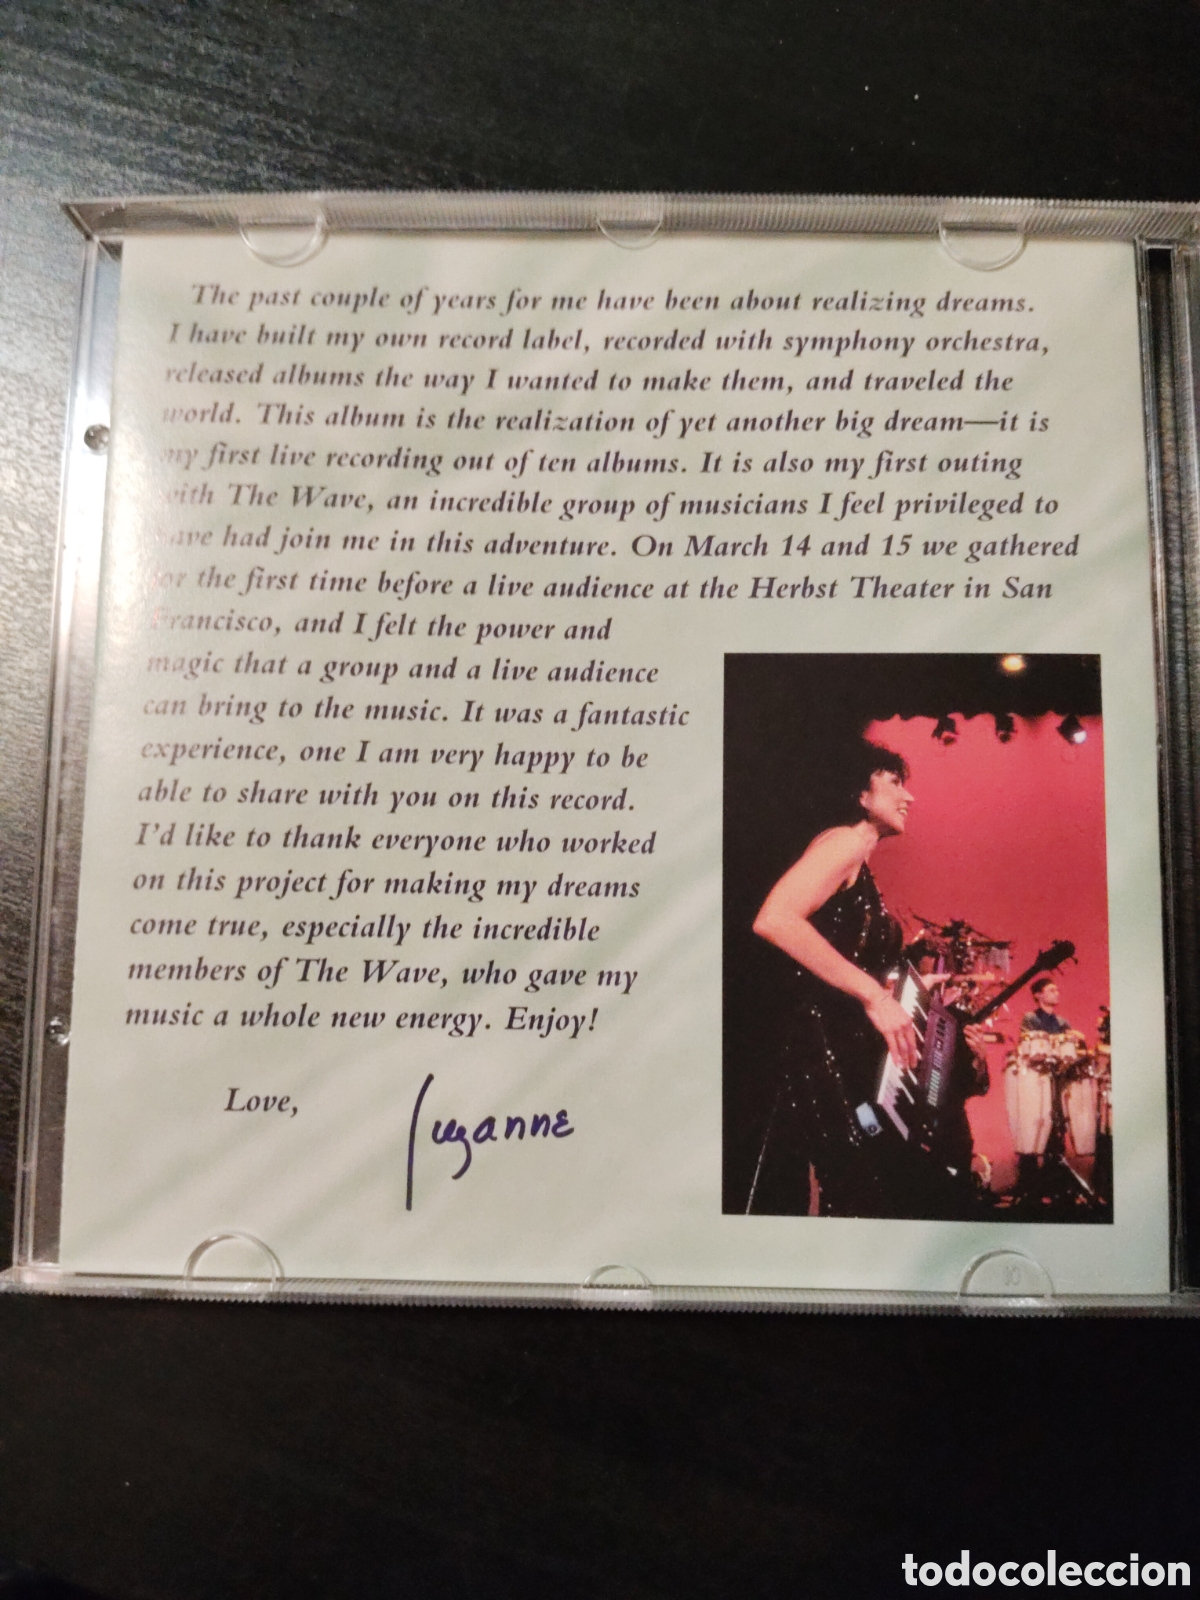 The past couple of years for me have been about realizing dreams.
I have built my own record label, recorded with symphony orchestra,
released albums the way I wanted to make them, and traveled the
world. This album is the realization of yet another big dream—it is
my first live recording out of ten albums. It is also my first outing
with The Wave, an incredible group of musicians I feel privileged to
have had join me in this adventure. On March 14 and 15 we gathered
for the first time before a live audience at the Herbst Theater in San
Francisco, and I felt the power and
magic that a group and a live audience
can bring to the music. It was a fantastic
experience, one I am very happy to be
able to share with you on this record.
I'd like to thank everyone who worked
on this project for making my dreams
come true, especially the incredible
members of The Wave, who gave my
music a whole new energy. Enjoy!
Love,
Suzanne
10
todocoleccion